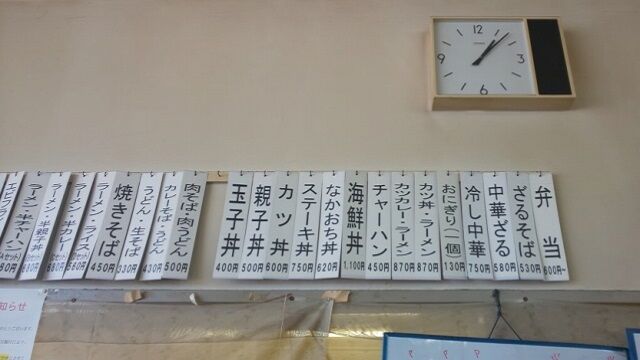 12
3
6
9
弁当
600円~
ざるそば
530円
中華ざる
580円
冷し中華
750円
おにぎり(一個)
130円
カツ丼・ラーメン
870円
カツカレー・ラーメン
870円
チャーハン
450円
海鮮丼
1,100円
なかおち丼
620円
ステーキ丼
750円
カツ丼
600円
親子丼
500円
玉子丼
400円
肉そば・肉うどん
500円
カレーそば・うどん
430円
うどん・生そば
330円
焼きそば
450円
ラーメン・ライス
ラーメン・半カレー
ラーメン・半親子丼
ラーメン・半チャーハン
知らせ